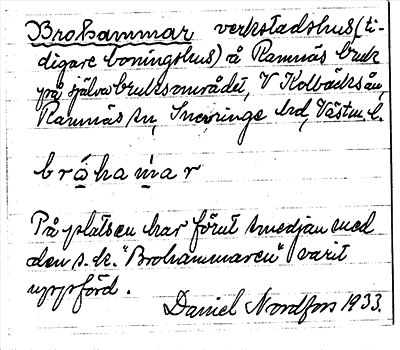 Brohammar verkstadshus (ti-
digare boningshus) å Ramnäs bruk
på själva bruksområdet, V Kolbäcksån,
Ramnäs sn, Snevringe hd, Västm. l.
bróhamar
På platsen har förut smedjan med
den s.k. "Brohammaren" varit
uppförd.
Daniel Nordfors 1933.